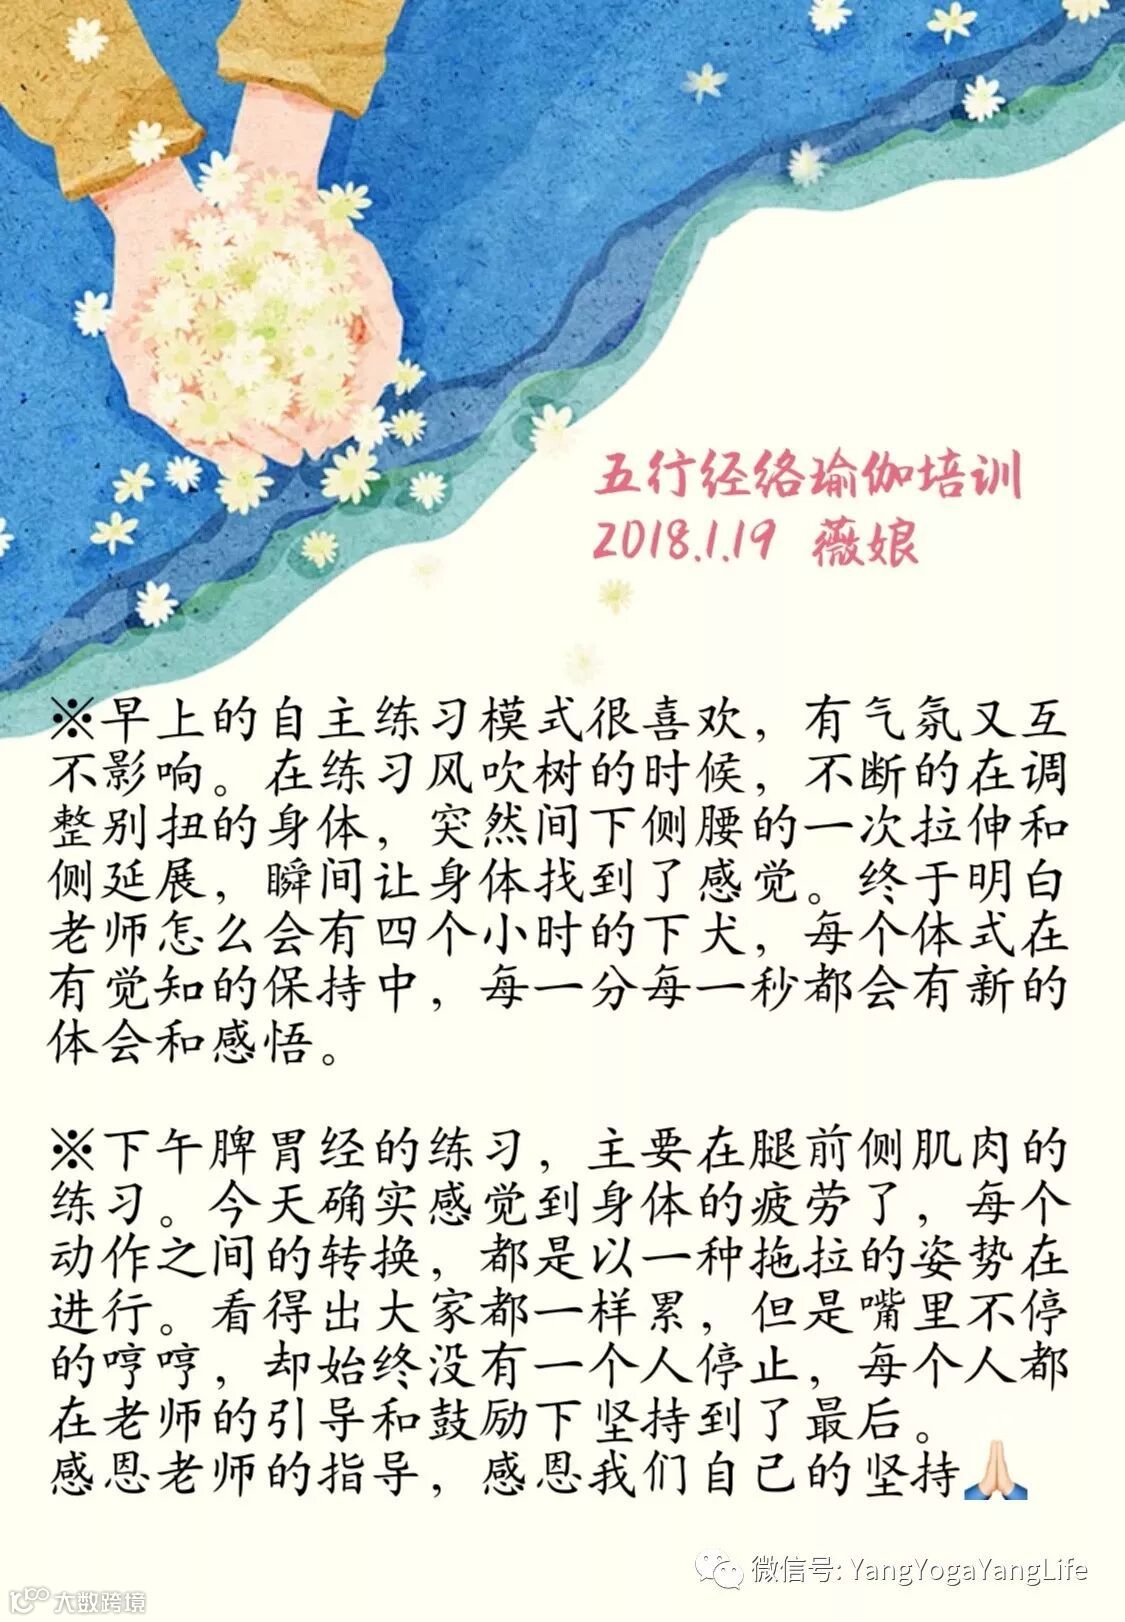 五行经络瑜伽培训
2018.1.19 薇娘
※早上的自主练习模式很喜欢，有气氛又互
不影响。在练习风吹树的时候，不断的在调
整别扭的身体，突然间下侧腰的一次拉伸和
侧延展，瞬间让身体找到了感觉。终于明白
老师怎么会有四个小时的下犬，每个体式在
有觉知的保持中，每一分每一秒都会有新的
体会和感悟。
※下午脾胃经的练习，主要在腿前侧肌肉的
练习。今天确实感觉到身体的疲劳了，每个
动作之间的转换，都是以一种拖拉的姿势在
进行。看得出大家都一样累，但是嘴里不停
的哼哼，却始终没有一个人停止，每个人都
在老师的引导和鼓励下坚持到了最后。
感恩老师的指导，感恩我们自己的坚持🙏🏻
微信号: YangYogaYangLife
大数跨境